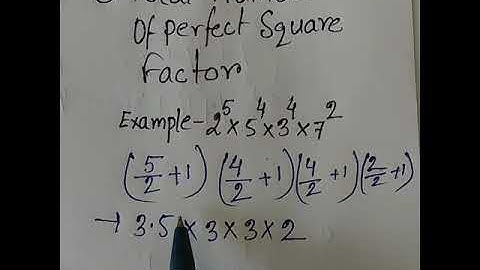 Of perfect Square
Factor
Example- 2⁵ × 5⁴ × 3⁴ × 7²
(5/2 + 1) (4/2 + 1) (4/2 + 1) (2/2 + 1)
→ 3.5 × 3 × 3 × 2